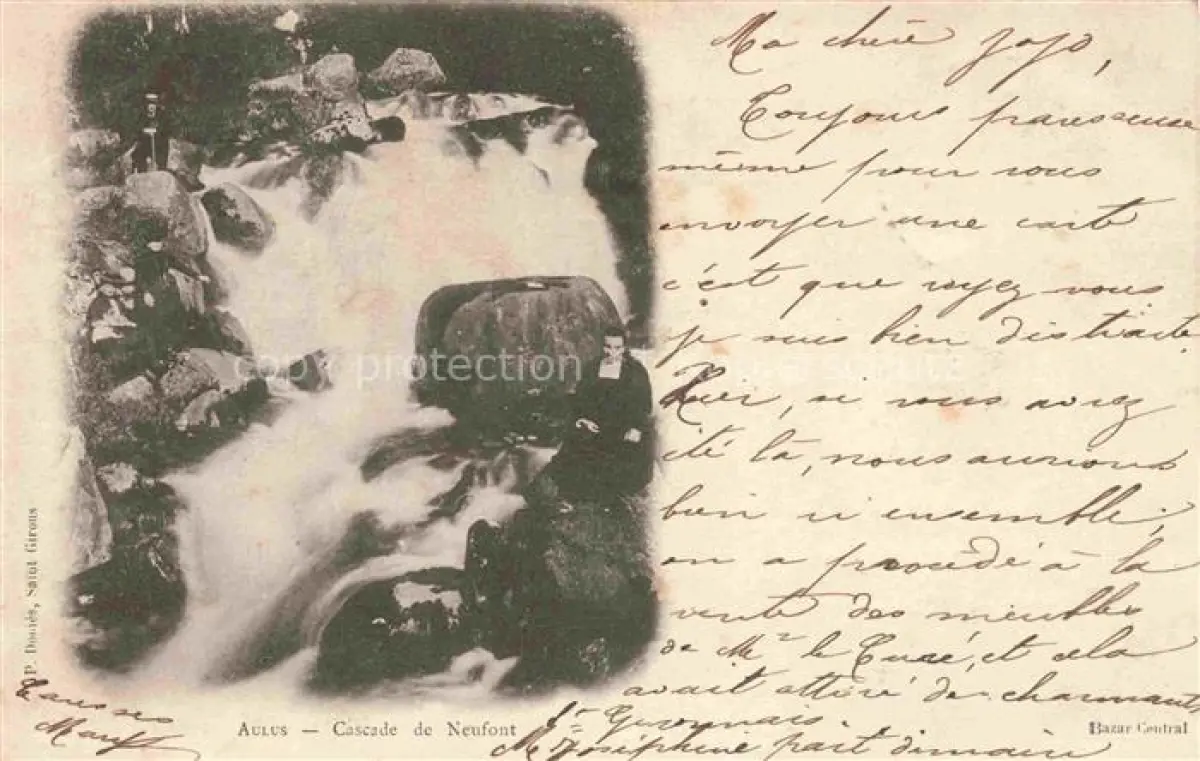 Ma chère Jojo,
Toujours paresseuse
même pour vous
envoyer une carte
c'est que voyez vous
je suis bien distraite.
Hier, si vous aviez
été là, nous aurions
bien ri ensemble;
on a procédé à la
vente des meubles
de Mr le Curé, et cela
avait attiré de charmants
St Gironnais.
M Joséphine part dimaire
Caresses
P. Douës, Saint Girons
AULUS — Cascade de Neufont
Bazar Central
copy protection